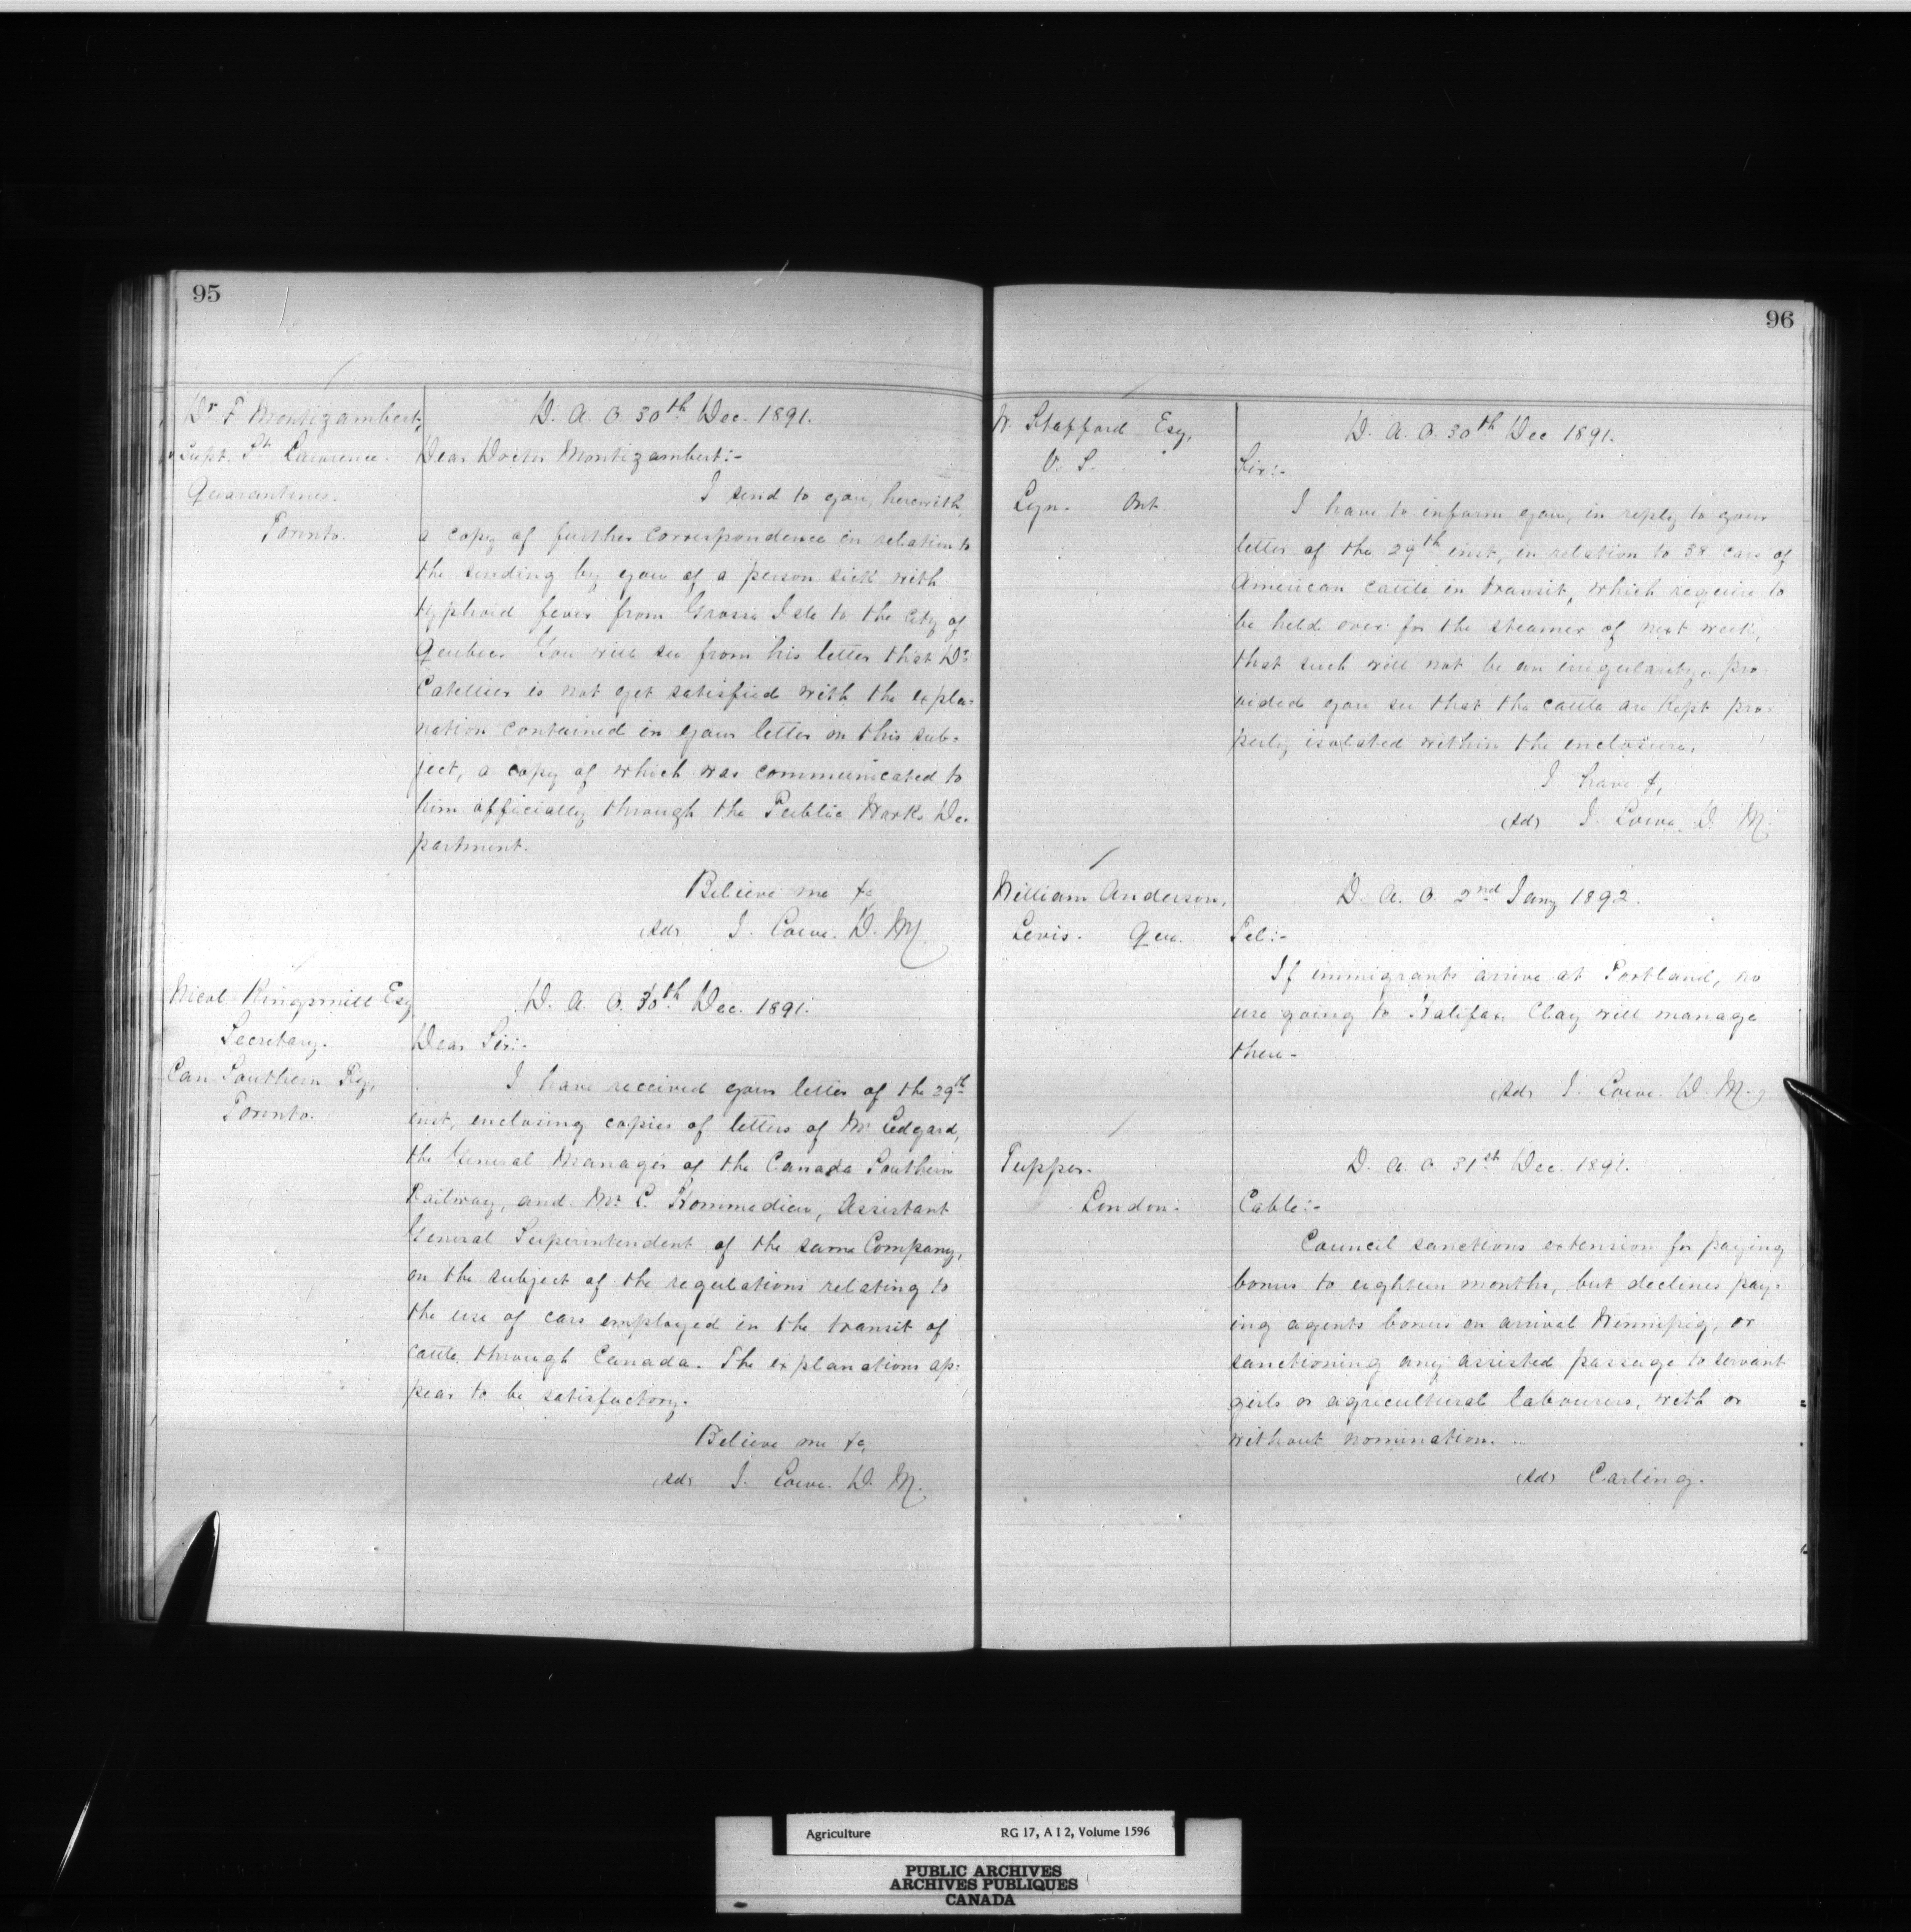 95
Dr F Montizambert,
Supt. St. Lawrence.
Quarantines.
Toronto.
D. A. O. 30th Dec. 1891.
Dear Doctor Montizambert:-
I send to you, herewith,
a copy of further correspondence in relation to
the sending by you of a person sick with
typhoid fever from Grosse Isle to the city of
Quebec. You will see from his letter that Dr
Catellier is not yet satisfied with the expla-
nation contained in your letter on this sub-
ject, a copy of which was communicated to
him officially through the Public Works De-
partment.
Believe me &c,
(sd) J. Lowe. D. M.
Nicol Kingsmill Esq
Secretary.
Can Southern Ry,
Toronto.
D. A. O. 30th Dec. 1891.
Dear Sir:-
I have received your letter of the 29th
inst, enclosing copies of letters of Mr Ledyard,
the General Manager of the Canada Southern
Railway, and Mr. L. Hommedieu, Assistant
General Superintendent of the same Company,
on the subject of the regulations relating to
the use of cars employed in the transit of
cattle through Canada. The explanations ap-
pear to be satisfactory.
Believe me &c,
(sd) J. Lowe. D. M.
96
W. Stafford Esq,
V. S.
Lyn. Ont.
D. A. O. 30th Dec 1891.
Sir:-
I have to inform you, in reply to your
letter of the 29th inst, in relation to 38 cars of
American cattle in transit, which require to
be held over for the steamer of next week,
that such will not be an irregularity, pro-
vided you see that the cattle are kept pro-
perly isolated within the enclosure.
I have &,
(sd) J. Lowe. D. M.
William Anderson,
Levis. Que.
D. A. O. 2nd Jany 1892.
Tel:-
If immigrants arrive at Portland, no
use going to Halifax Clay will manage
there-
(sd) J. Lowe. D. M.
Tupper.
London.
D. A. O. 31st Dec. 1891.
Cable:-
Council sanctions extension for paying
bonus to eighteen months, but declines pay-
ing agents bonus on arrival Winnipeg, or
sanctioning any assisted passage to servant
girls or agricultural labourers, with or
without nomination.
(sd) Carling.
Agriculture RG 17, A I 2, Volume 1596
PUBLIC ARCHIVES
ARCHIVES PUBLIQUES
CANADA